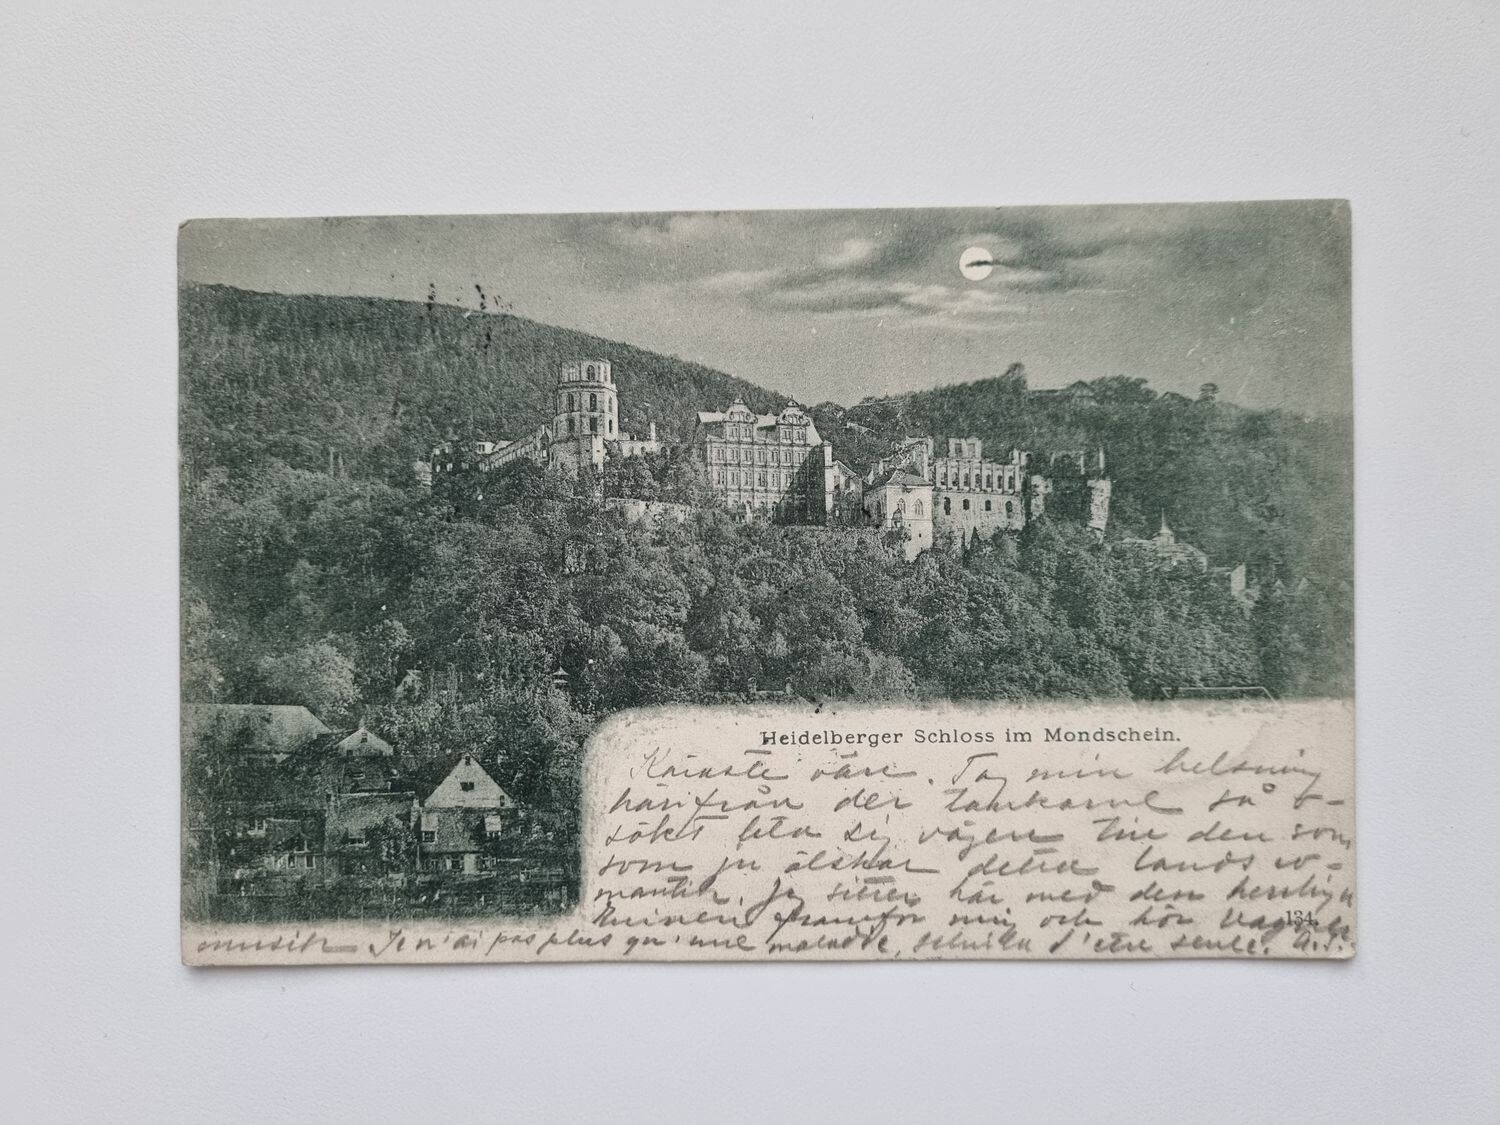 Heidelberger Schloss im Mondschein.
Käraste vän. Tag min helsning
härifrån der tankarne så o-
sökt leta sig vägen till den som
som ju älskar detta lands ro-
mantik. Jag sitter här med den herrliga
Ruinen framför mig och hör Wagners
134.
musik Je n'ai pas plus qu'une maladie, d'être seule. A.S.